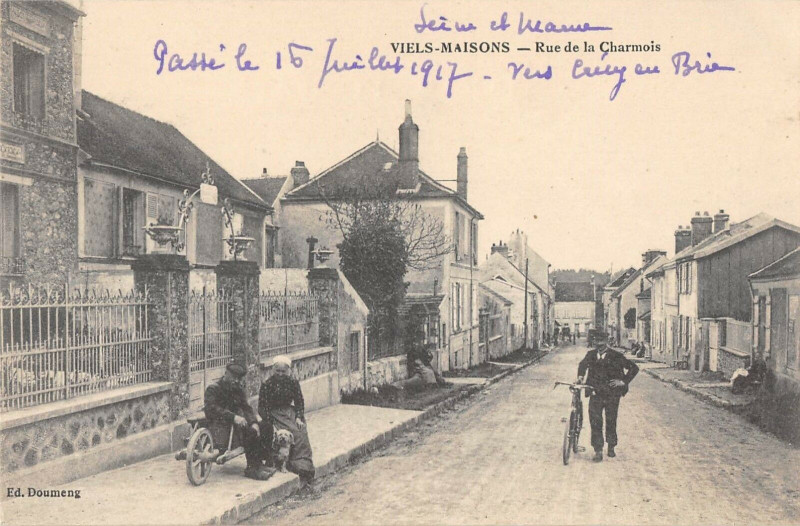 Seine et Marne
VIELS-MAISONS — Rue de la Charmois
Passé le 16 Juillet 1917 - Vers Crécy en Brie
Ed. Doumeng